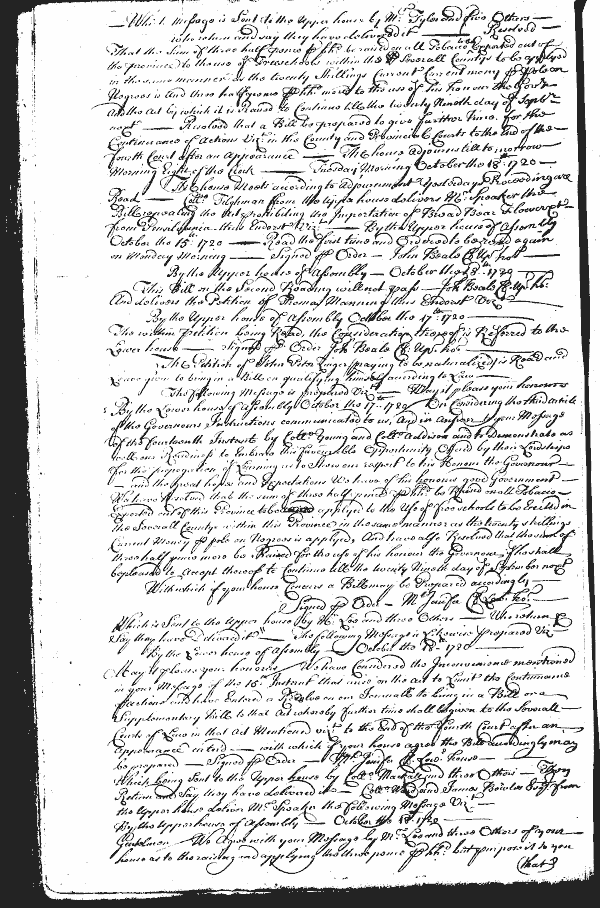 Which Message is Sent to the Upper house by Mr. Tyler and five Others —
who return and say they have delivered it — Resolved —
That the Sum of three half pence pr hhd. be raised on all Tobacco Exported out of
the province to the use of Freeschools within the Severall Countys to be applyed
in the same manner as the twenty Shillings Current money pr pole on
Negroes is And three half pence pr hhd. more to the use of his honour the Govr.
And the Act by which it is Raised to Continue till the twenty Ninth day of Septr.
next — Resolved that a Bill be prepared to give further time for the
Continuance of Actions Vizt. in the County and Provinciall Courts to the End of the
fourth Court after an Appearance — The house Adjourns till to morrow
Morning Eight of the Clock — Tuesday Morning October the 18th. 1720 —
The house Meets according to Adjournment Yesterdays Proceedings are
Read — Collo. Tilghman from the Upper house delivers Mr. Speaker the
Bill repealing the Act prohibiting the Importation of Bread Beer &
from Pensilvania thus Endorst Vizt. — By the Upper house of Assembly
October the 15. 1720 — Read the first time and Ordered to be read again
on Monday Morning — Signed pr Order — John Beale Cl. Up. ho:
By the Upper house of Assembly — October the 18th. 1720
This Bill on the Second Reading will not pass — Jo: Beale Cl. Up. ho:
And delivers the Petition of Thomas Manning thus Endorst Vizt.
By the Upper house of Assembly October the 17th. 1720 —
The within petition being Read, the Consideration thereof is Referred to the
Lower house — Signed pr Order Jo: Beale Cl. Up. ho:
The Petition of John praying to be naturalized is Read and
Leave given to bring in a Bill on qualifying himself according to Law —
The following Message is prepared Vizt. — May it please your honours
By the Lower house of Assembly October the 17th. 1720 On Considering the third Article
of the Governours Instructions communicated to us, And in Answer to your Message
of the fourteenth Instant by Collo. Young and Collo. Addison and to Demonstrate as
well our Readiness to Embrace this favourable Opportunity Offered by their Lordships
for the propagation of Learning as to Shew our respect to his Honour the Governour
— and the great hopes and Expectations We have of his honours good Government —
We have Resolved that the sum of three half pence pr hhd. be Raised on all Tobacco —
Exported out of this Province to be applyed to the Use of free schools to be Erected in
the Severall Countys within this Province in the same manner as the twenty shillings
Current Money pr pole on Negroes is applyed, And have also Resolved that the sum of
three half pence more be Raised for the use of his honour the Governour if he shall
be pleased to Accept thereof to Continue till the twenty Ninth day of September next
With which if your house Concurs a Bill may be prepared accordingly —
Signed pr Order — M: Jenifer Cl. Low. ho: —
Which is Sent to the Upper house by Mr. Lee and three Others — Who return &
Say they have delivered it — The following Message is Likewise prepared Vizt.
By the Lower house of Assembly — October the 18th. 1720 —
May it please your honours We have Considered the Inconveniences mentioned
in your Message of the 15th. Instant that arise on the Act to Limit the Continuance
of actions and have Entered a Resolve on our Journall to bring in a Bill or a
Supplementary bill to that Act whereby further time shall be given to the Severall
Courts of Law in that Act Mentioned vizt. to the End of the Fourth Court after an
Appearance entred — with which if your house agree the Bill accordingly may
be prepared — Signed pr Order — M: Jenifer Cl. Low: house —
Which being Sent to the Upper house by Collo. Mackall and three Others — They
Return and Say they have delivered it — Collo. Ward and James Bowles Esqr. from
the Upper house deliver Mr. Speaker the following Message Vizt.
By the Upper house of Assembly — October the 18th. 1720
Gentlemen — We Agree with your Message by Mr. Lee and three Others of your —
house as to the raising and applying the three pence pr hhd. but propose it to you
that